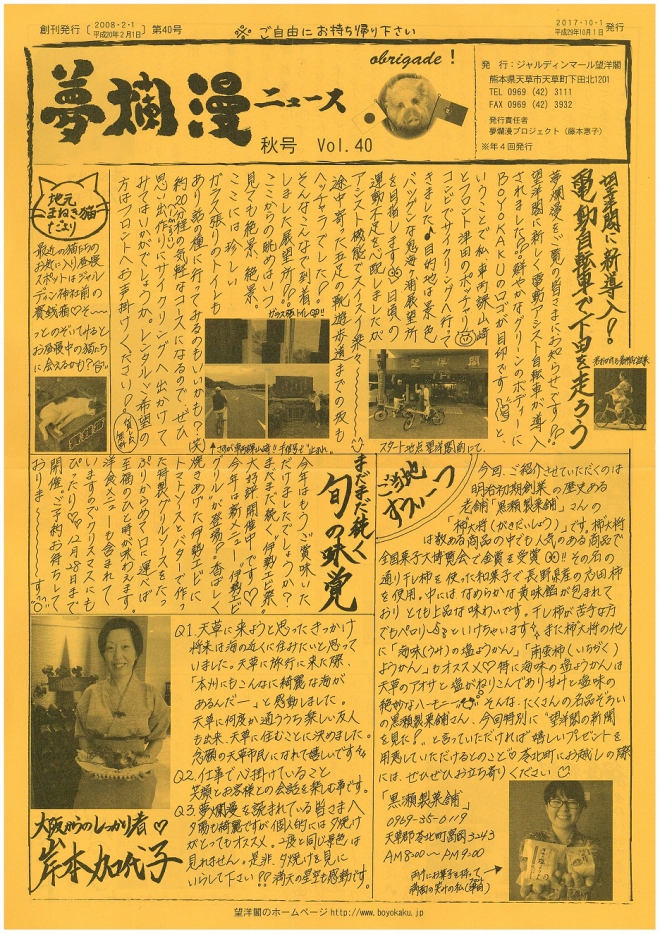 創刊発行 2008・2・1 平成20年2月1日 第40号
※ご自由にお持ち帰り下さい
2017・10・1 平成29年10月1日 発行
夢爛漫ニュース
obrigade!
秋号 Vol.40
発 行：ジャルディンマール望洋閣
熊本県天草市天草町下田北1201
TEL 0969 (42) 3111
FAX 0969 (42) 3932
発行責任者
夢爛漫プロジェクト（藤本恵子）
※年４回発行
望洋閣に新導入！
電動自転車で下田を走ろう
夢爛漫をご覧の皆さまにお知らせです!?
望洋閣に新しく電動アシスト自転車が導入
されました!?鮮やかなグリーンのボディーに
BOYOKAKUのロゴが目印です
と
いうことで私、車両係山崎
とフロント津田のポッチャリ
コンビでサイクリングへ行って
きました♪目的地は景色
バツグンな鬼海ヶ浦展望所
を目指します 日頃の
運動不足を心配しましたが
アシスト機能でスイスイ
途中寄った五足の靴遊歩道までの坂も
ヘッチャラでした!?
そんなこんなで到着
しました展望所!?
ここからの眺めはいつ
見ても絶景、絶景。
ここには珍しい
ガラス張りのトイレも
あり話の種に行ってみるのもいいかも？(笑)
約20分程の気軽なコースになるのでぜひ
思い出作りにサイクリングへ出かけて
みてはいかがでしょうか。レンタルご希望の
方はフロントへお声掛けください!!
ガラス張トイレ
スタート地点望洋閣前にて
地元
まねき猫
だより
最近の猫たちの
お気に入り昼寝
スポットはジャル
ディン神社前の
賽銭箱♡そ〜
っとのぞいてみると
お昼寝中の猫たち
に会えるかも？
まだまだ続く
旬の味覚
今年はもうご賞味いた
だけましたでしょうか？
まだまだ続く伊勢エビ祭
大好評開催中です♡
今年は新メニュー「伊勢エビ
グリル」が登場!?香ばしく
焼きあげた伊勢エビに
トマトソースとバターで作っ
た特製グリルソースをたっ
ぷりからめて口に運べば
至福のひと時が味わえます。
洋食メニューも含まれて
いますのでクリスマスにも
ぴったり♡12月28日まで
開催!?ご予約お待ちして
おりま〜〜〜す
ご当地
すうぃーつ
今回、ご紹介させていただくのは
明治初期創業の歴史ある
老舗「黒瀬製菓舗」さんの
「柿大将（かきだいしょう）」です。柿大将
は数ある商品の中でも人気のある商品で
全国菓子大博覧会で金賞を受賞!! その名の
通り干し柿を使った和菓子で長野県産の市田柿
を使用。中にはなめらかな黄味餡が包まれて
おりとても上品な味わいです。干し柿が苦手な方
でもペロリといけちゃいます また柿大将の他
に「海味（うみ）の塩ようかん」「南蛮柿（いちぢく）
ようかん」もオススメ♡特に海味の塩ようかんは
天草のアオサと塩がねりこんであり甘みと塩味の
絶妙なハーモニー そんな、たくさんの名品ぞろい
の黒瀬製菓舗さん、今回特別に“望洋閣の新聞
を見た？”と言っていただければ嬉しいプレゼントを
用意していただけるとのこと♡苓北町にお越しの際
には、ぜひぜひお立ち寄りください
「黒瀬製菓舗」
0969-35-0119
天草郡苓北町富岡3243
AM8:00〜PM9:00
両手にお菓子を持って
満面の笑みの私(津田)
Q1.天草に来ようと思ったきっかけ
将来は海の近くに住みたいと思って
いました。天草に旅行に来た際、
「本州にもこんなに綺麗な海が
あるんだー」と感動しました。
天草に何度か通ううち楽しい友人
も出来、天草に住むことに決めました。
念願の天草市民になれて嬉しいです
Q2.仕事で心掛けていること
笑顔とお客様との会話を楽しむ事です。
Q3.夢爛漫を読まれている皆さまへ
夕陽も綺麗ですが個人的には夕焼け
がとってもオススメ。2度と同じ景色は
見れません。是非、夕焼けを見に
いらして下さい!?満天の星空も感動です。
大阪からのしっかり者♡
岸本加代子
望洋閣のホームページ http://www.boyokaku.jp